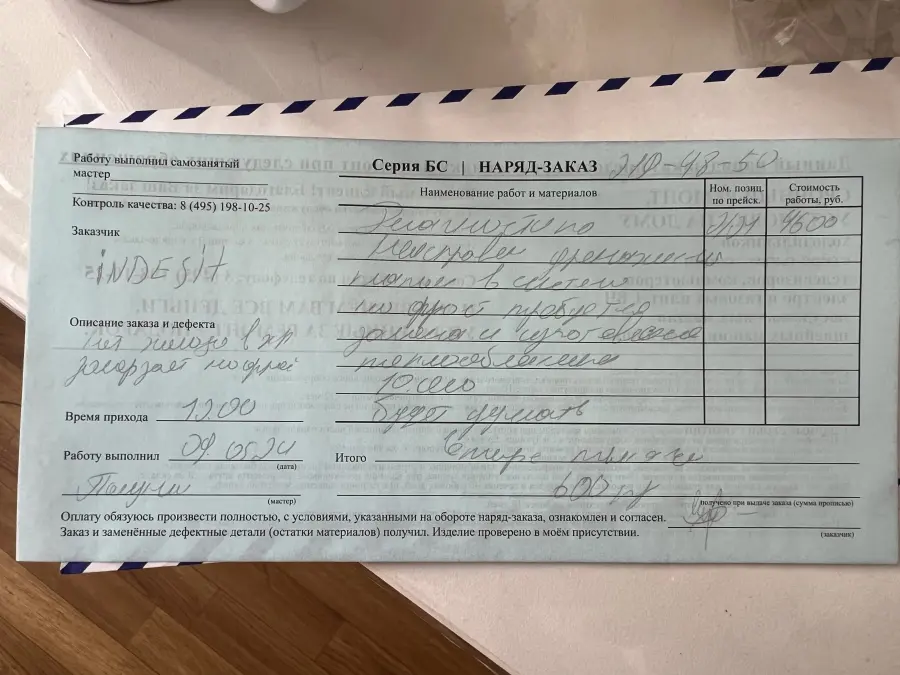 Работу выполнил самозанятый
мастер
Контроль качества: 8 (495) 198-10-25
Заказчик
iNDESiT
Описание заказа и дефекта
Нет холода в хк
замерзает ноуфрост
Время прихода 12.00
Работу выполнил 09.05.24
(дата)
(мастер)
Серия БС | НАРЯД-ЗАКАЗ 210-48-50
Наименование работ и материалов
Ном. позиц. по прейск.
Стоимость работы, руб.
Диагностика 4600
Неисправен дренажный
клапан в системе
ноу фрост требуется
замена и изготовление
теплообменника
будет думать
Итого Четыре тысячи
600 ру
получено при выдаче заказа (сумма прописью)
Оплату обязуюсь произвести полностью, с условиями, указанными на обороте наряд-заказа, ознакомлен и согласен.
Заказ и заменённые дефектные детали (остатки материалов) получил. Изделие проверено в моём присутствии.
(заказчик)